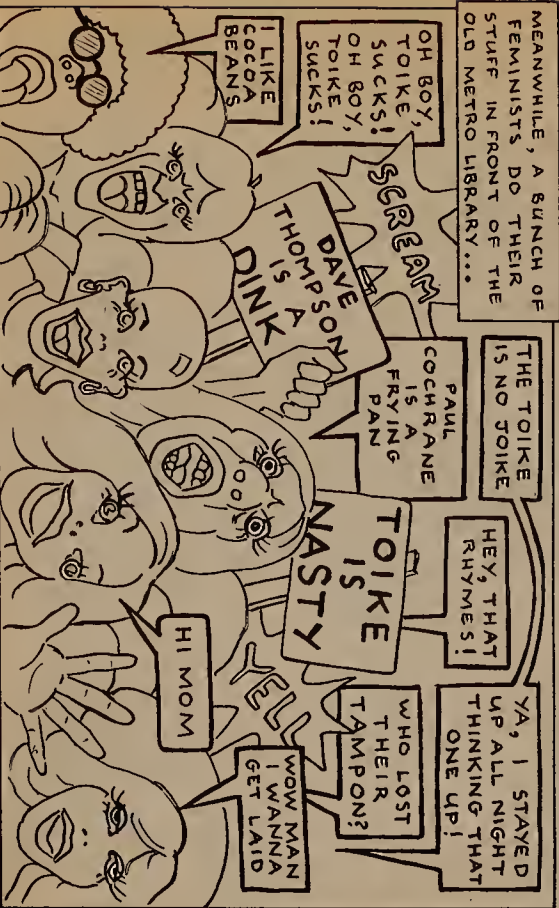 MEANWHILE, A BUNCH OF
FEMINISTS DO THEIR
STUFF IN FRONT OF THE
OLD METRO LIBRARY...
OH BOY,
TOIKE,
SUCKS!
OH BOY,
TOIKE
SUCKS!
I LIKE
COCOA
BEANS
SCREAM
DAVE
THOMPSON
IS A
DINK
THE TOIKE
IS NO JOIKE
PAUL
COCHRANE
IS A
FRYING
PAN
HEY, THAT
RHYMES!
TOIKE
IS
NASTY
YA, I STAYED
UP ALL NIGHT
THINKING THAT
ONE UP!
WHO LOST
THEIR
TAMPON?
YELL
HI MOM
WOW MAN
I WANNA
GET LAID